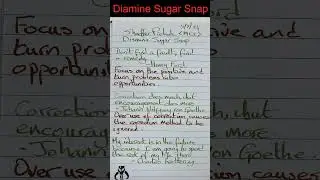 Diamine Sugar Snap
Diamine Sugar Snap
Don't find a faulty find
a remedy
Henry Ford
Focus on the positive and
burn problems into
opportunities.
Correction does much, but
encouragement does more
- Johann Wolfgang von Goethe
Over use of correction causes
the correction method to be
ignored.
My interest is in the future
because I am going to spend
the rest of my life there
- Charles Kettering
Focus on
burn prob
opportuni
but
encourag
more
- Johann
Goethe
Over use
uses